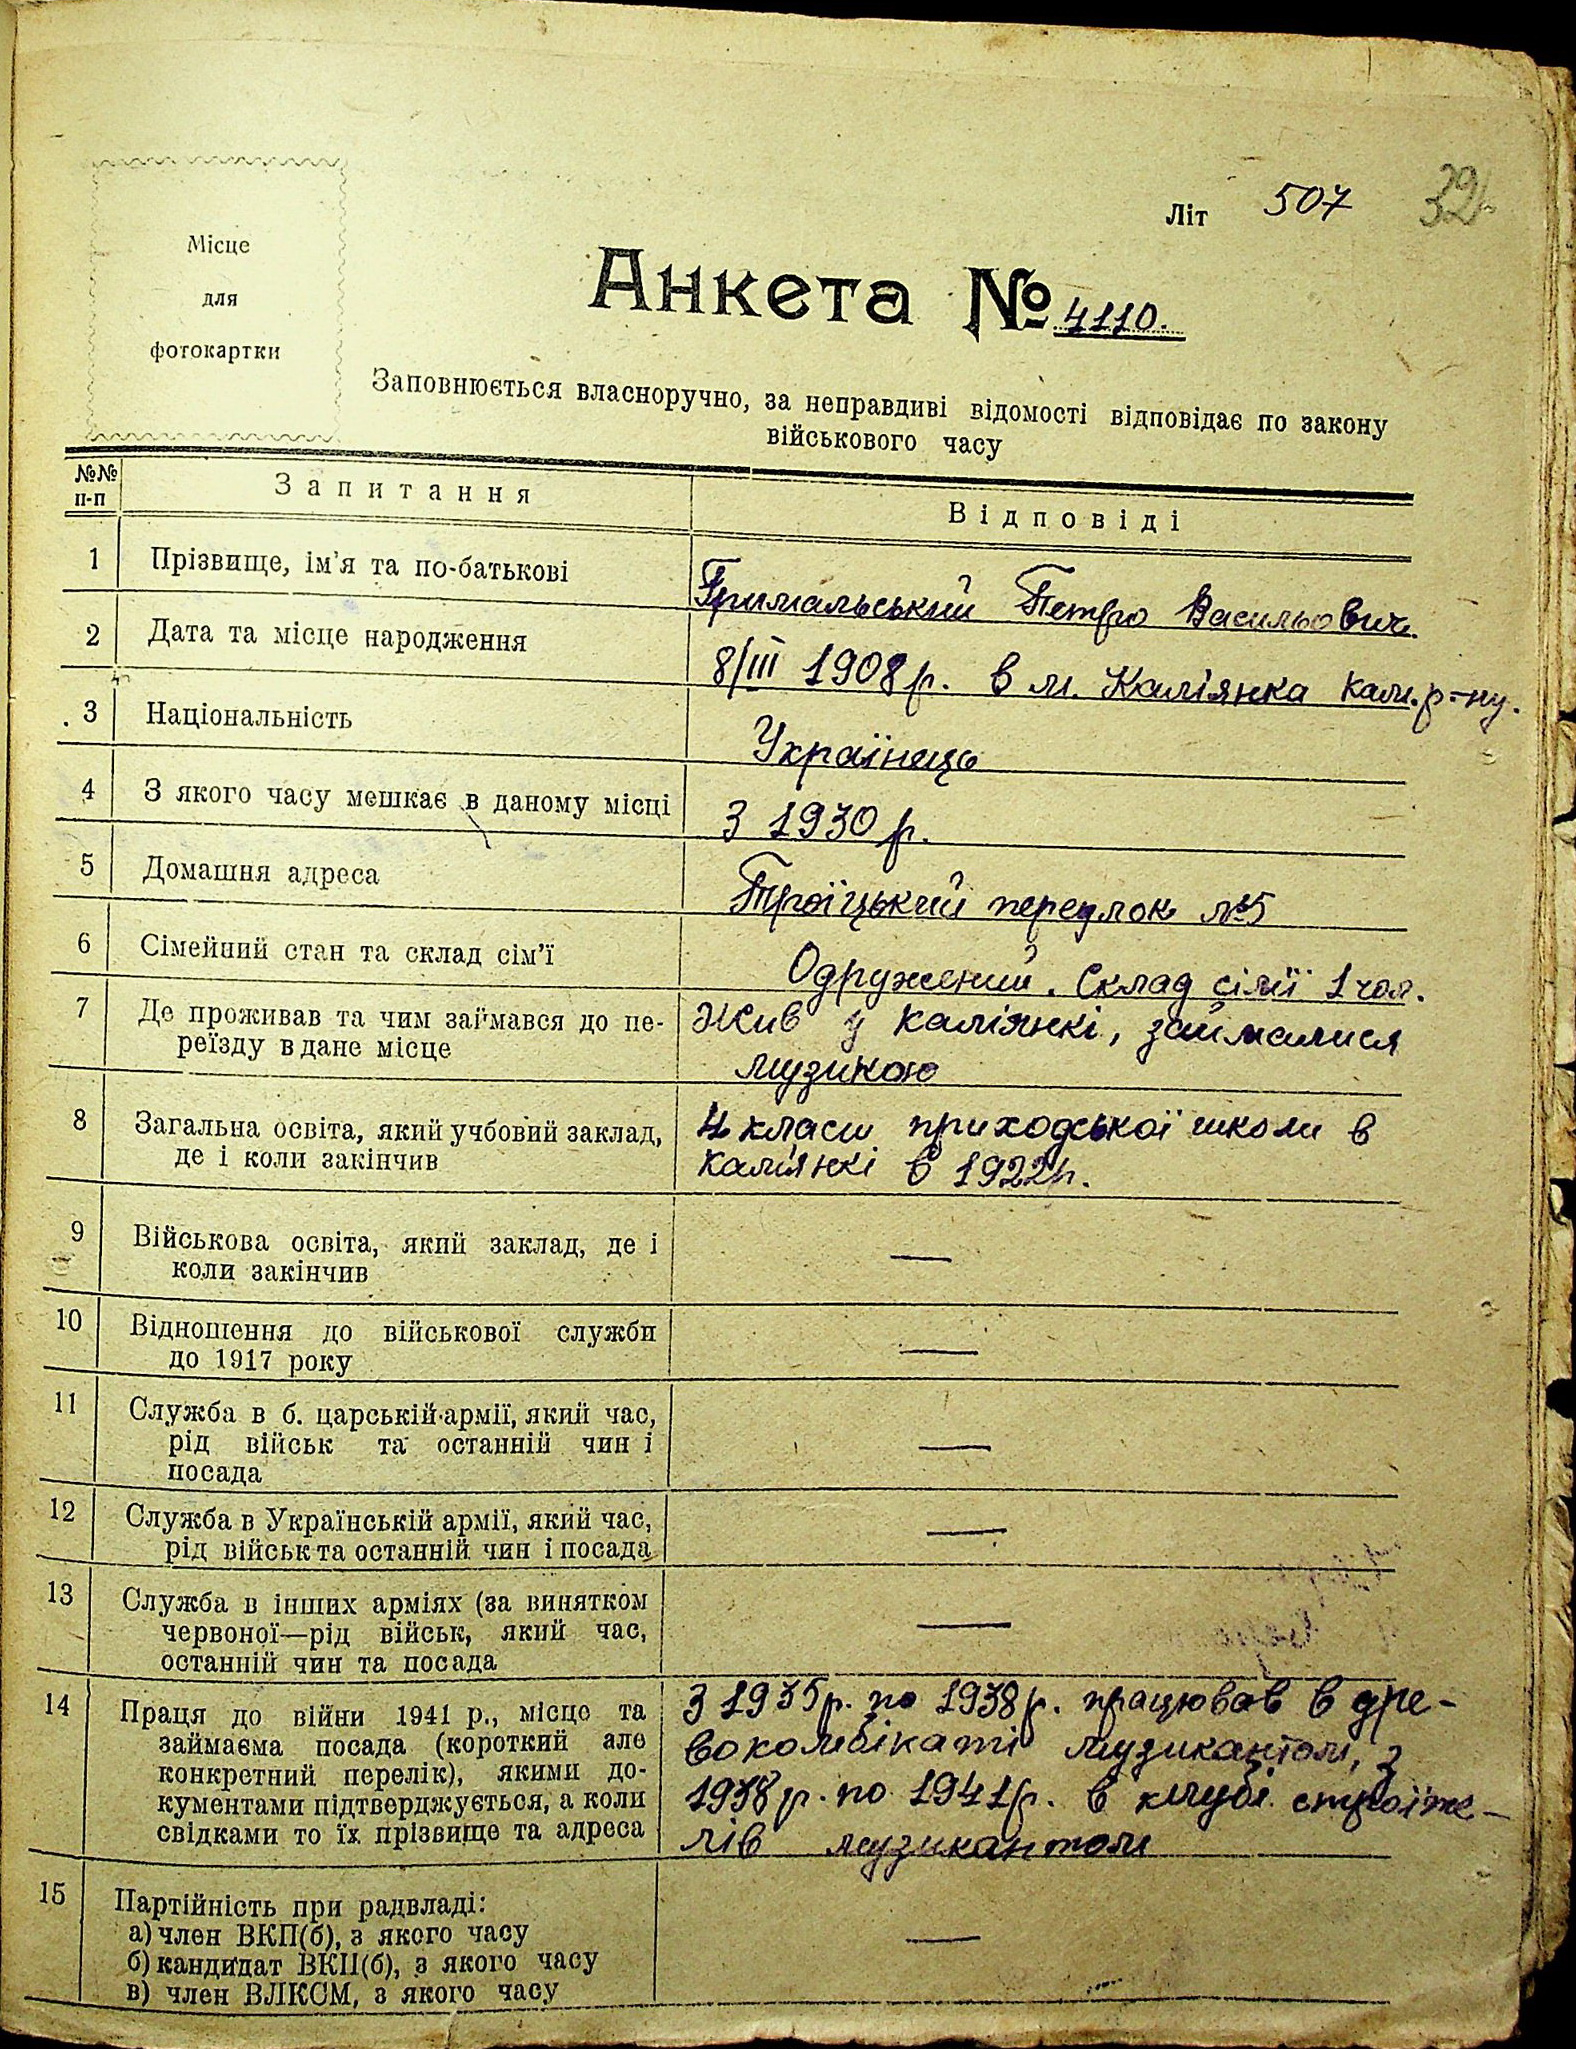 Літ 507 32
Місце
для
фотокартки
Анкета № 4110.
Заповнюється власноручно, за неправдиві відомості відповідає по закону
військового часу
№№ п-п Запитання Відповіді
1 Прізвище, ім'я та по-батькові Грималський Петро Васильович.
2 Дата та місце народження 8/III 1908 р. в м. Калі́янка кал. р-ну.
3 Національність Українець
4 З якого часу мешкає в даному місці З 1930 р.
5 Домашня адреса Троїцький переулок №5
6 Сімейний стан та склад сім'ї Одружений. Склад сімї 1 чол.
7 Де проживав та чим займався до пе-
реїзду в дане місце
Жив у Каліянкі, займалися
музикою
8 Загальна освіта, який учбовий заклад,
де і коли закінчив
4 класи приходської школи в
Каліянкі в 1922 р.
9 Військова освіта, який заклад, де і
коли закінчив —
10 Відношення до військової служби
до 1917 року —
11 Служба в б. царській армії, який час,
рід військ та останній чин і
посада —
12 Служба в Українській армії, який час,
рід військ та останній чин і посада —
13 Служба в інших арміях (за винятком
червоної—рід військ, який час,
останній чин та посада —
14 Праця до війни 1941 р., місце та
займаєма посада (короткий але
конкретний перелік), якими до-
кументами підтверджується, а коли
свідками то їх прізвище та адреса
З 1935 р. по 1938 р. працював в дре-
вокомбікаті музикантом, з
1938 р. по 1941 р. в клубі строїте-
лів музикантом
15 Партійність при радвладі:
а) член ВКП(б), з якого часу
б) кандидат ВКП(б), з якого часу
в) член ВЛКСМ, з якого часу —